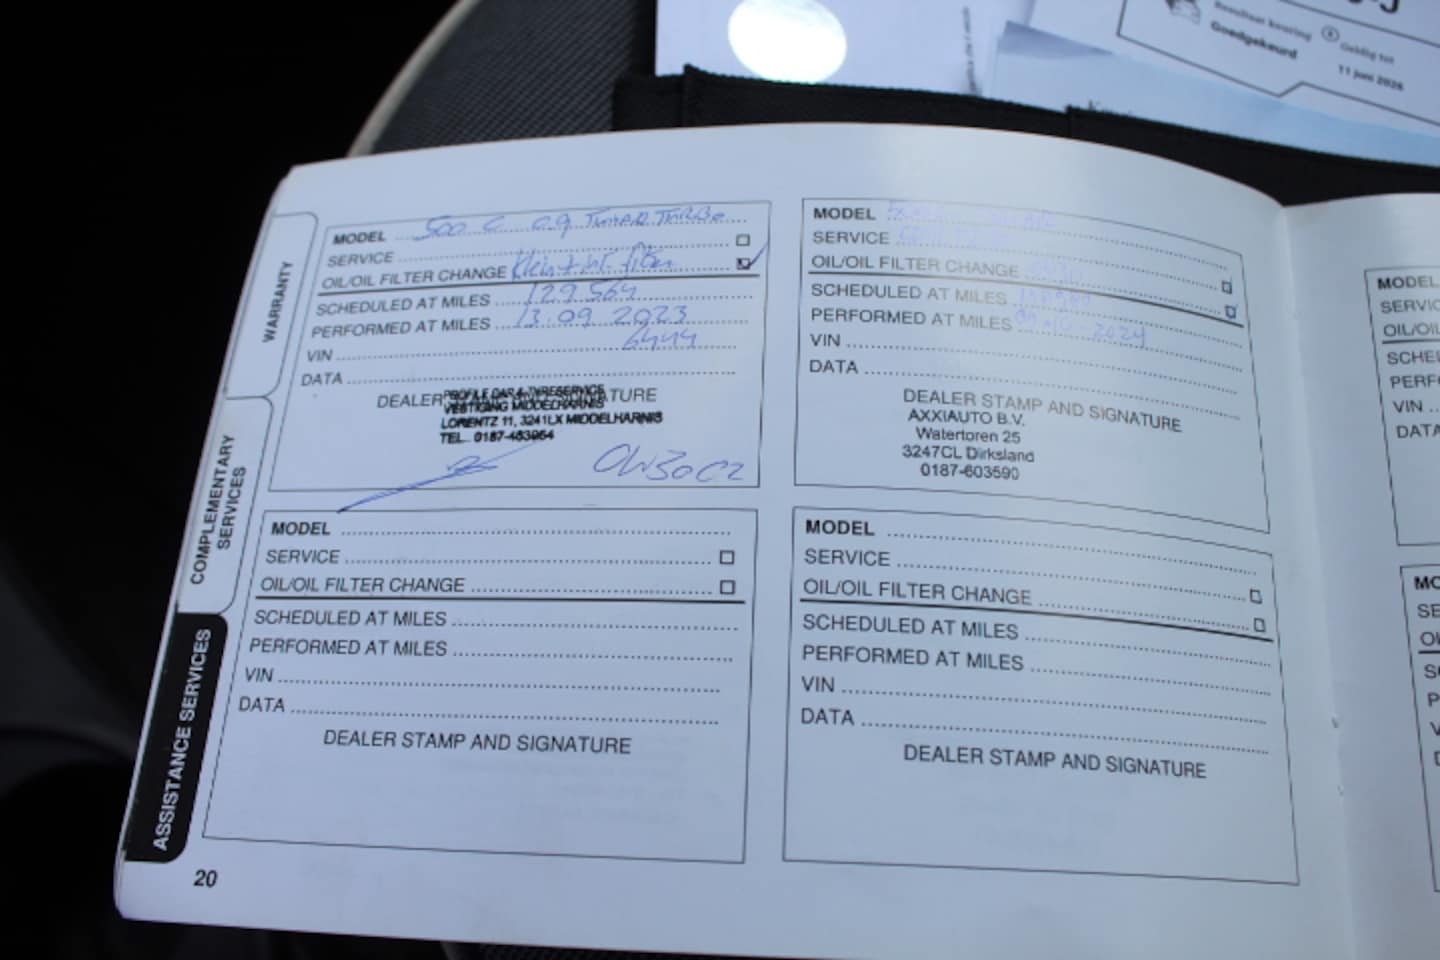 Resultaat keuring
Goedgekeurd
Geldig tot
11 juni 2026
WARRANTY
COMPLEMENTARY
SERVICES
ASSISTANCE SERVICES
MODEL 500 C 0.9
SERVICE
OIL/OIL FILTER CHANGE Klein
SCHEDULED AT MILES 129.564
PERFORMED AT MILES 13.09 2023
VIN
DATA
DEALER STAMP AND SIGNATURE
PROFILE CAR & TYRESERVICE
VESTIGING MIDDELHARNIS
LORENTZ 11, 3241LX MIDDELHARNIS
TEL. 0187-483964
MODEL
SERVICE
OIL/OIL FILTER CHANGE
SCHEDULED AT MILES
PERFORMED AT MILES 2024
VIN
DATA
DEALER STAMP AND SIGNATURE
AXXIAUTO B.V.
Watertoren 25
3247CL Dirksland
0187-603590
MODEL
SERVICE
OIL/OIL FILTER CHANGE
SCHEDULED AT MILES
PERFORMED AT MILES
VIN
DATA
DEALER STAMP AND SIGNATURE
MODEL
SERVICE
OIL/OIL FILTER CHANGE
SCHEDULED AT MILES
PERFORMED AT MILES
VIN
DATA
DEALER STAMP AND SIGNATURE
MODEL
VIN
20